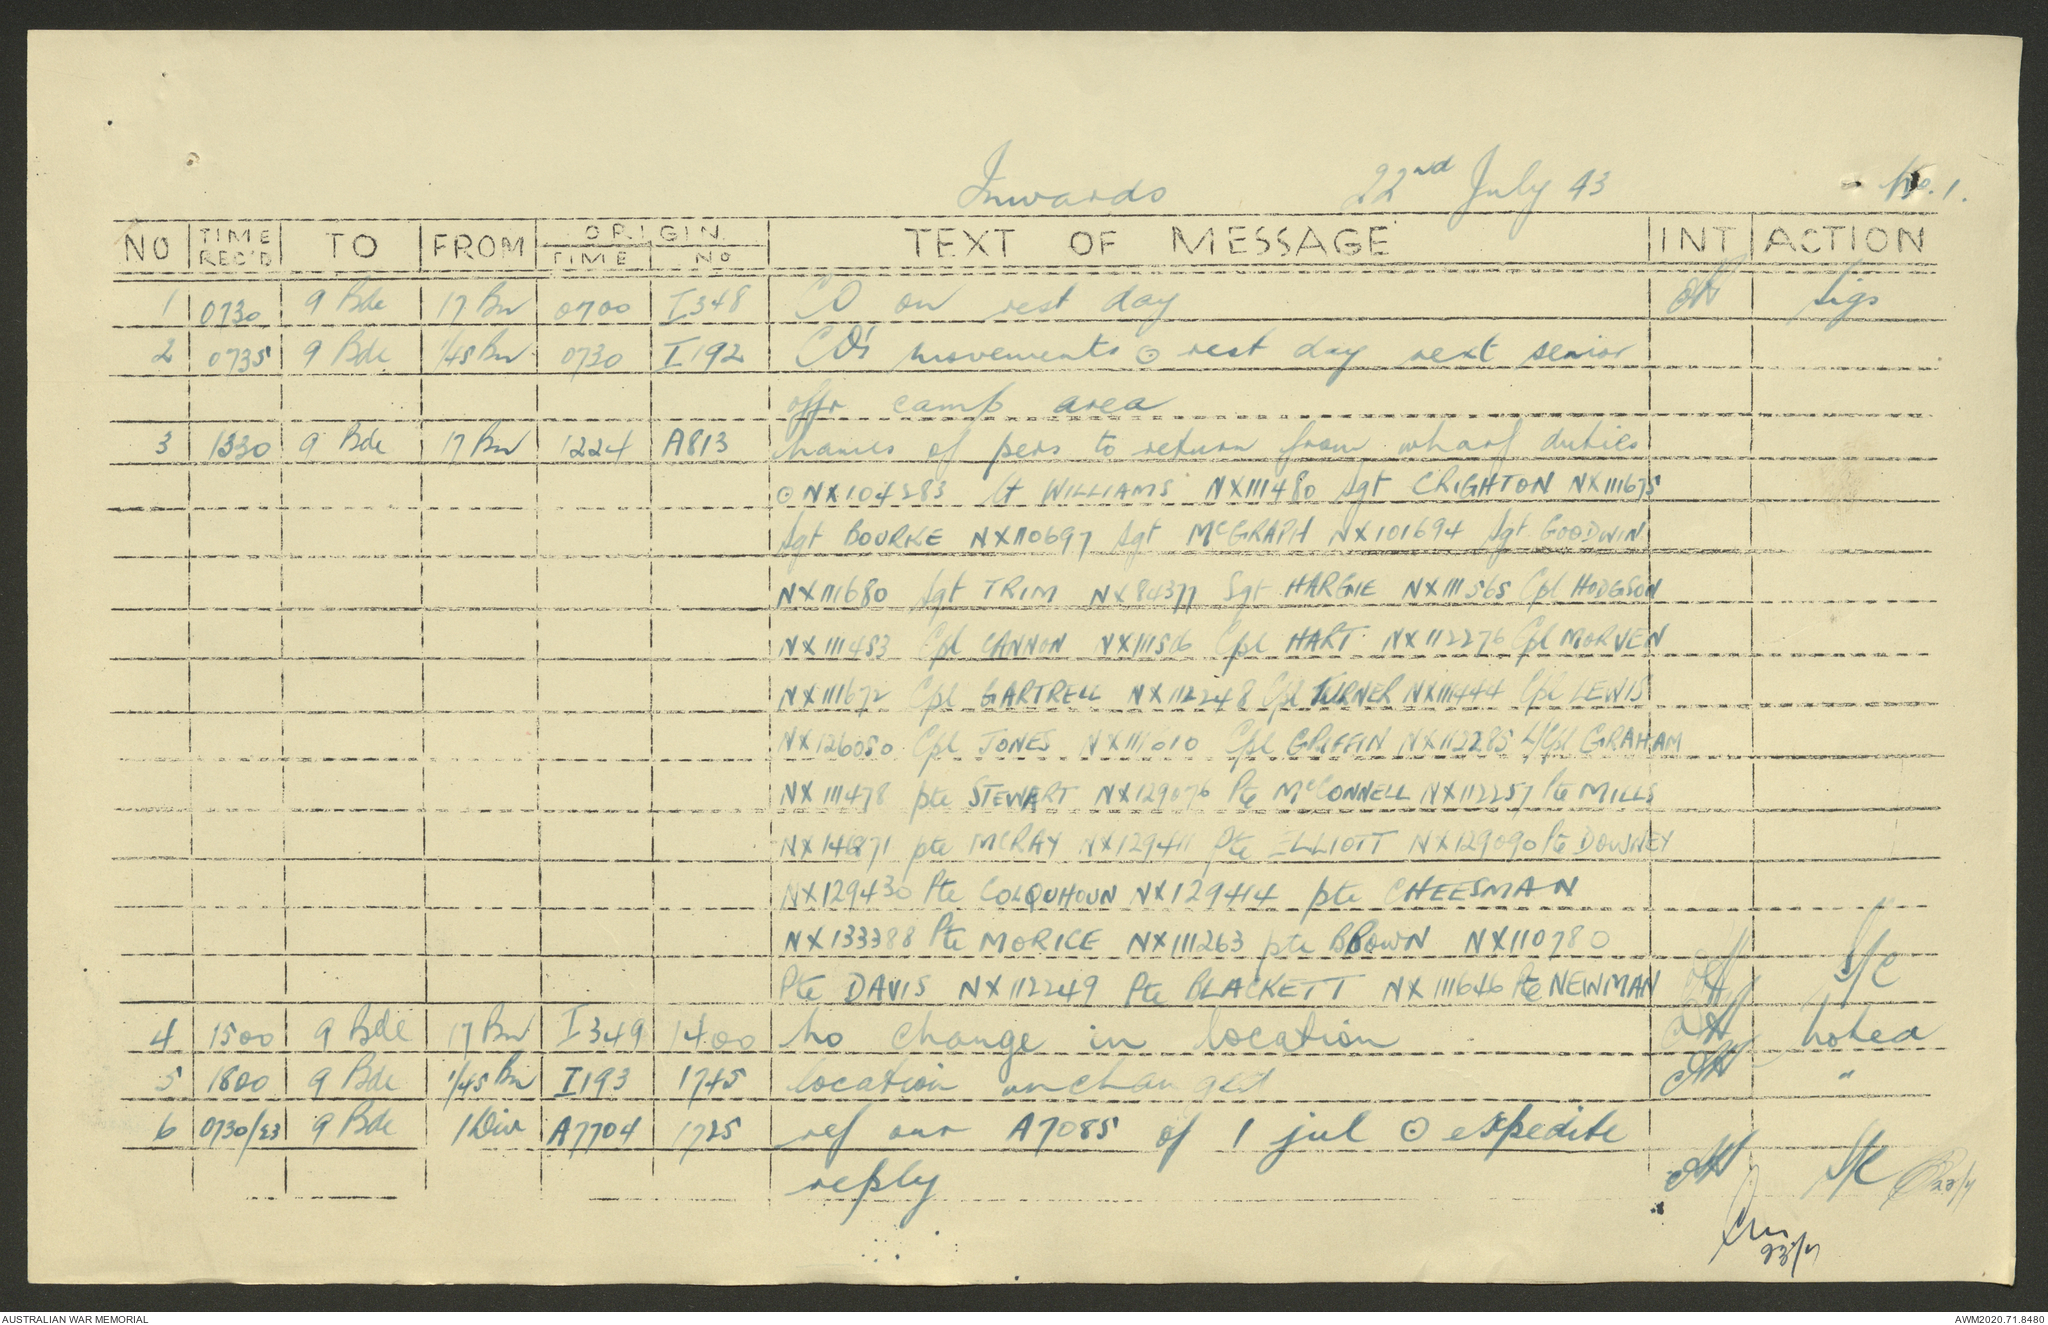 Inwards 22nd July 43 No. 1.
NO TIME REC'D TO FROM ORIGIN TIME NO TEXT OF MESSAGE INT ACTION
1 0730 9 Bde 17 Bn 0700 I348 CO on rest day Sigs
2 0735 9 Bde 1/45 Bn 0730 I192 CO's movements ⊙ rest day next senior
offr camp area
3 1330 9 Bde 17 Bn 1224 A813 names of pers to return from wharf duties
⊙ NX104283 Lt WILLIAMS NX111480 Sgt CRIGHTON NX111675
Sgt BOURKE NX110697 Sgt McGRAPH NX101694 Sgt GOODWIN
NX111680 Sgt TRIM NX84377 Sgt HARGIE NX111565 Cpl HODGSON
NX111483 Cpl CANNON NX111506 Cpl HART NX112276 Cpl MORVEN
NX111672 Cpl GARTRELL NX112248 Cpl TURNER NX111444 Cpl LEWIS
NX126050 Cpl JONES NX111610 Cpl GRIFFIN NX112285 L/Cpl GRAHAM
NX111478 pte STEWART NX129076 Pte McCONNELL NX112257 Pte MILLS
NX14871 pte McRAY NX129411 Pte ELLIOTT NX129090 Pte DOWNEY
NX129430 Pte COLQUHOUN NX129414 pte CHEESMAN
NX133388 Pte MORICE NX111263 pte BROWN NX110780
Pte DAVIS NX112249 Pte BLACKETT NX111646 Pte NEWMAN S/C
4 1500 9 Bde 17 Bn I349 1400 No change in location noted
5 1800 9 Bde 1/45 Bn I193 1745 location unchanged "
6 0730/23 9 Bde 1 Div A7704 1725 ref our A7085 of 1 jul ⊙ expedite
reply S/C 23/7
23/7
AUSTRALIAN WAR MEMORIAL AWM2020.71.8480